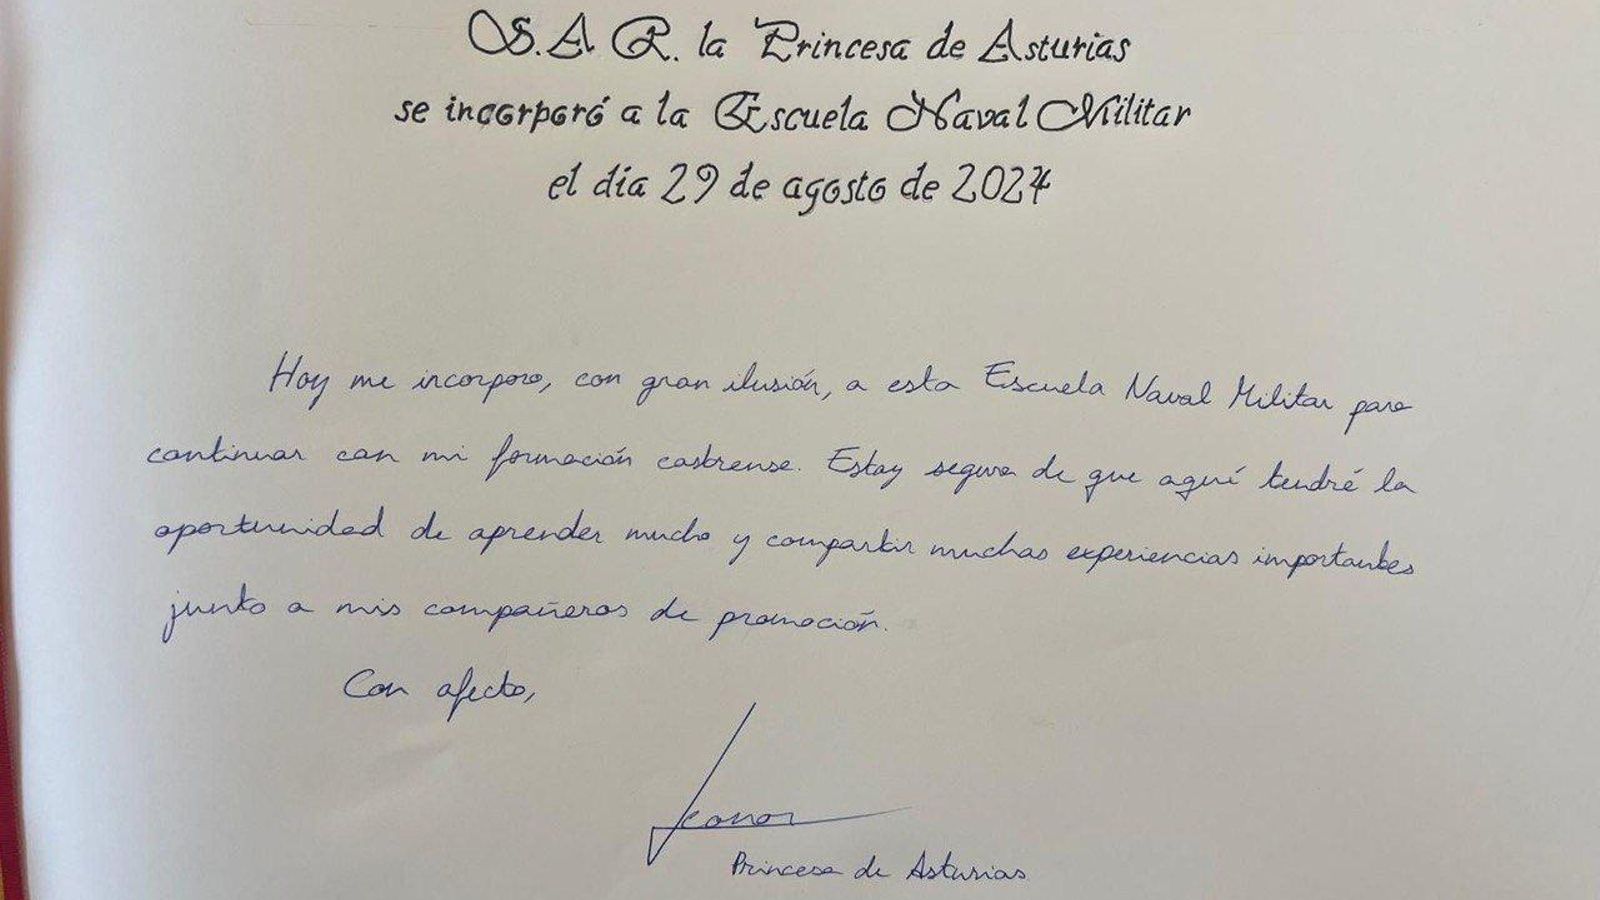 S.A.R. la Princesa de Asturias
se incorporó a la Escuela Naval Militar
el día 29 de agosto de 2024
Hoy me incorporo, con gran ilusión, a esta Escuela Naval Militar para
continuar con mi formación castrense. Estoy segura de que aquí tendré la
oportunidad de aprender mucho y compartir muchas experiencias importantes
junto a mis compañeros de promoción.
Con afecto,
Leonor
Princesa de Asturias